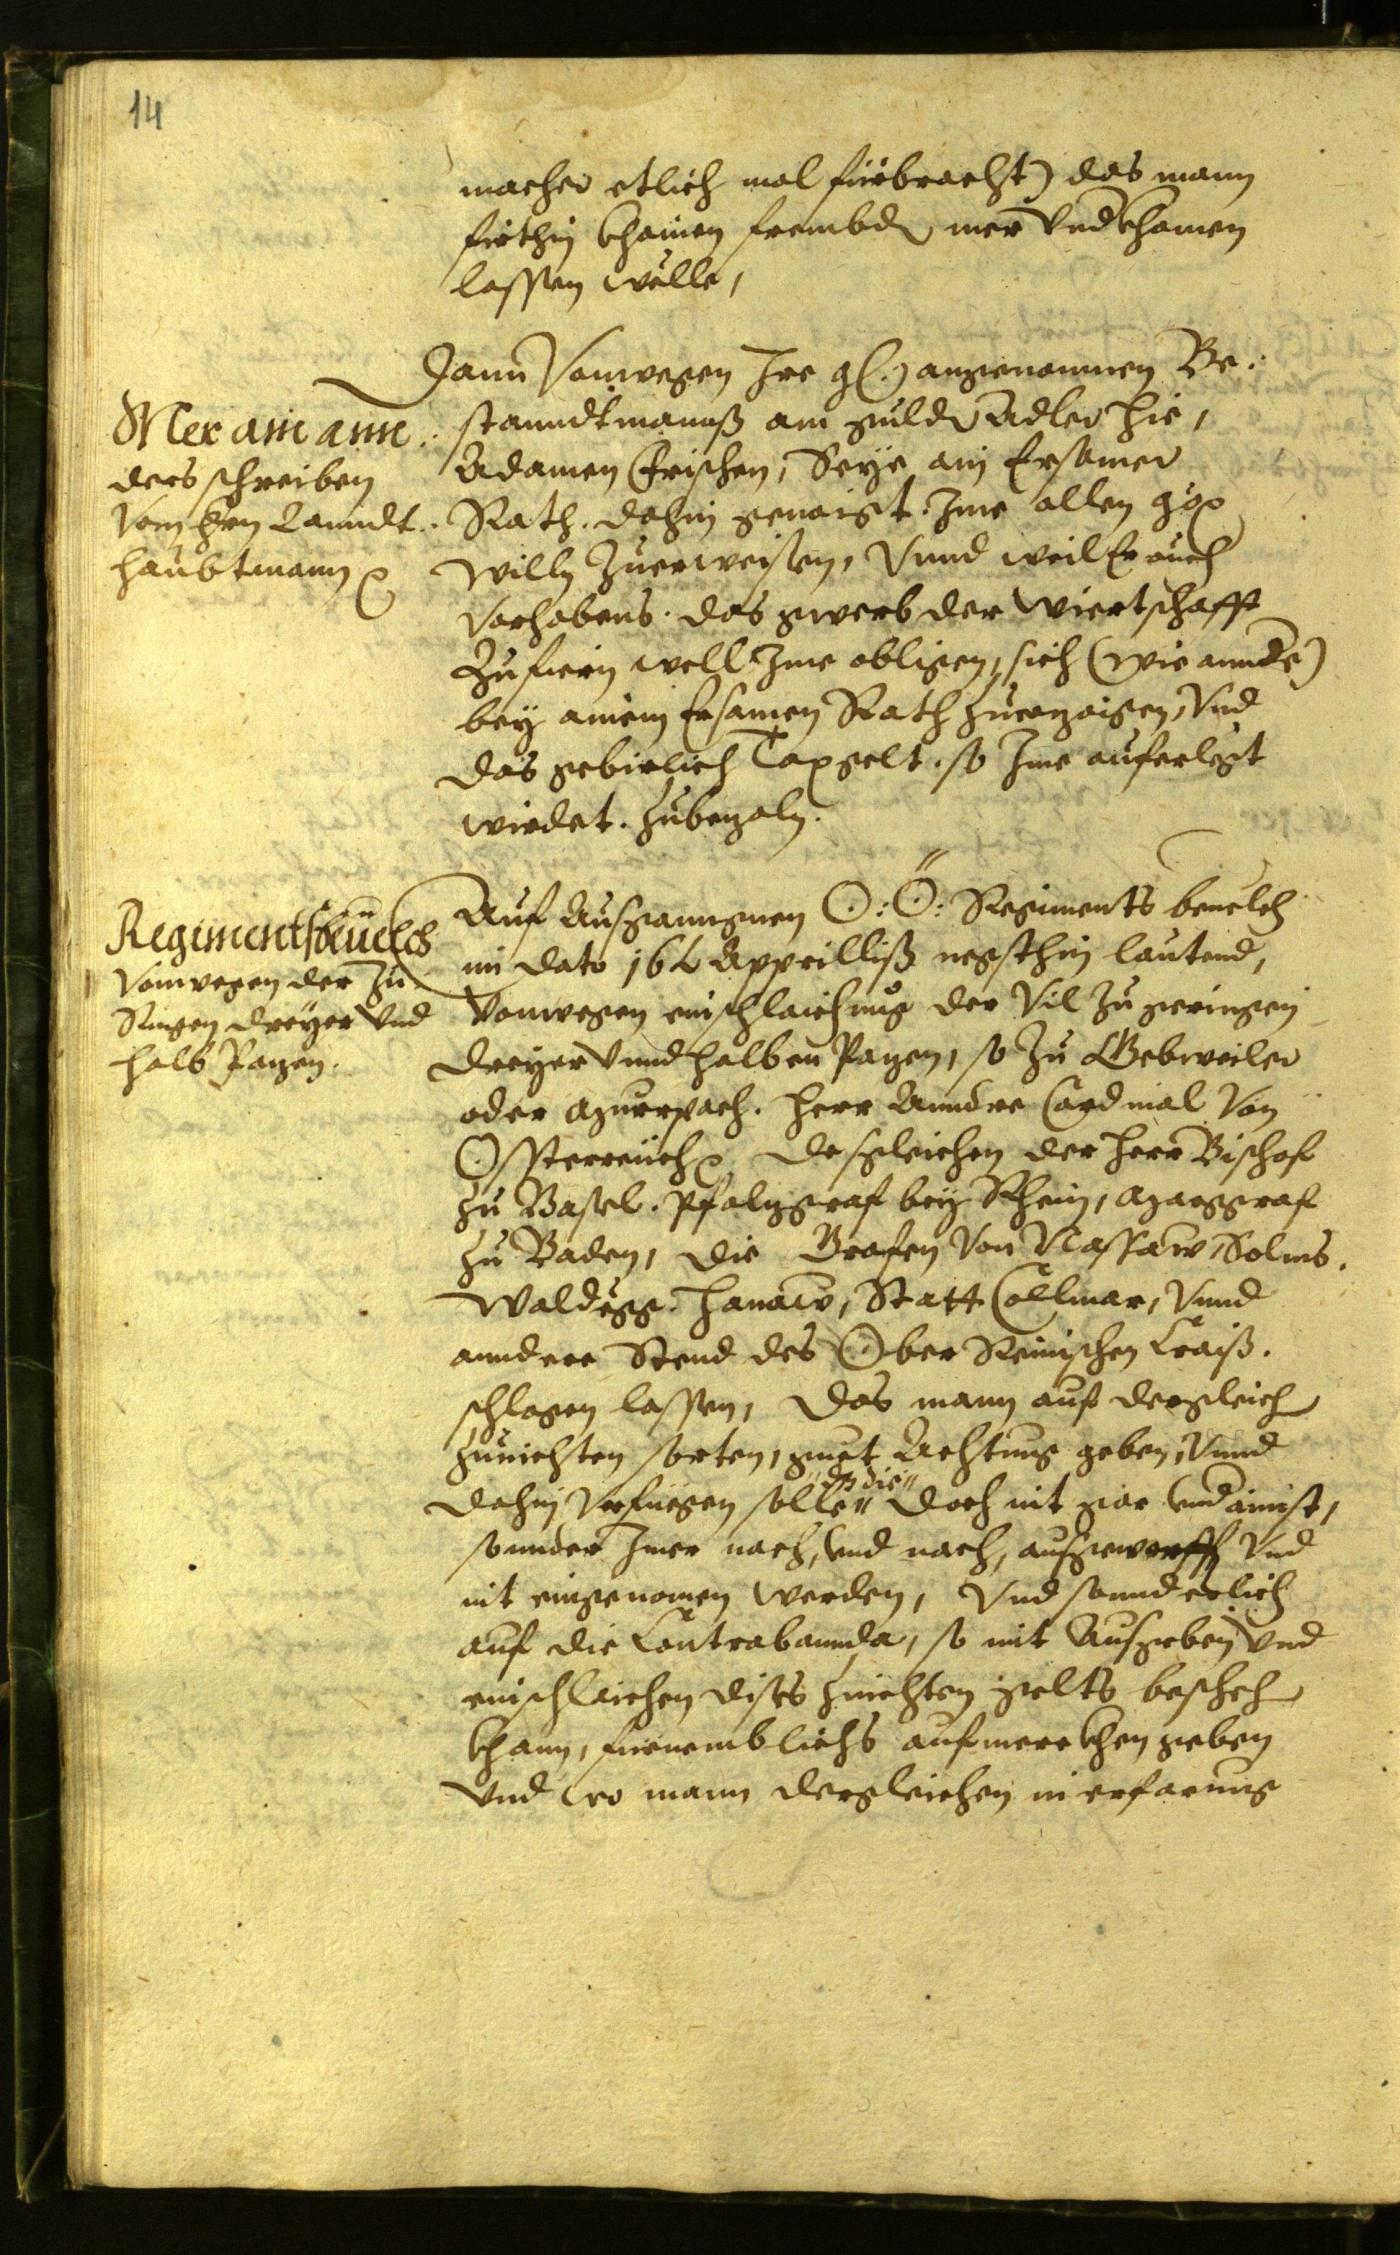 14
macher etlich mal fürbracht) das mann
firthin khainen frembden mer Vnd khomen
lassen wölle,
Dann Vonwegen Irr gl.) angenomnen Be:
Mer ain ann:
ders schreiben
Vom Hern Lanndt:
haubtmann
standtmannß am guldin Adler hie,
Adamen Frischen, Seye ain Ersamer
Rath. dahin genaigt. Ime allen
Willn Zuerweisen, Vnnd weil Er auch
Vorhabens. das gwerb der Wiertschafft
Zufiern well Ime obligen, sich (wie annde)
bey ainem Ersamen Rath Zuerzaigen, Vnd
das gebirlich Taxgelt. so Ime auferlegt
wirdet. Zubezaln.
Regimentsbeuelch
Vonwegen der Zu
Ringen dreyer Vnd
halb Pazen.
Auf Ausganngnen O: Ö: Regiments beuelch
im dato 16 Apprilliß negsthin lautend,
Vonwegen einschlaichung der Vil Zu geringen
dreyer Vnnd halben Pazen, so Zu Gebweiler
oder Murrpach. Herr Anndre Cardinal Von
Össterreich desgleichen der Herr Bischof
Zu Basel. Pfalzgraf bey Rhein, Marggraf
Zu Baden, die Grafen Von Nassaw, Solms.
Waldegg. Hanaw, Statt Collmar, Vnnd
anndere Stend des Ober Reinischen Craiß.
schlagen lassen, Das mann auf dergleich
Zunichten sorten, guet Achtung geben, Vnnd
dahin Verfüegen solle "dz die" doch nit gar Vnd ainist,
sonnder Imer nach, Vnd nach, ausgeworffen Vnd
nit eingenomen werden, Vnd sonnderlich
auf die Contrabannda, so mit Ausgeben Vnd
einschlaichen dises Znichten gelts bescheh
khann, fürnemblichs aufmerckhen geben
Vnd wo mann dergleichen in erfarung